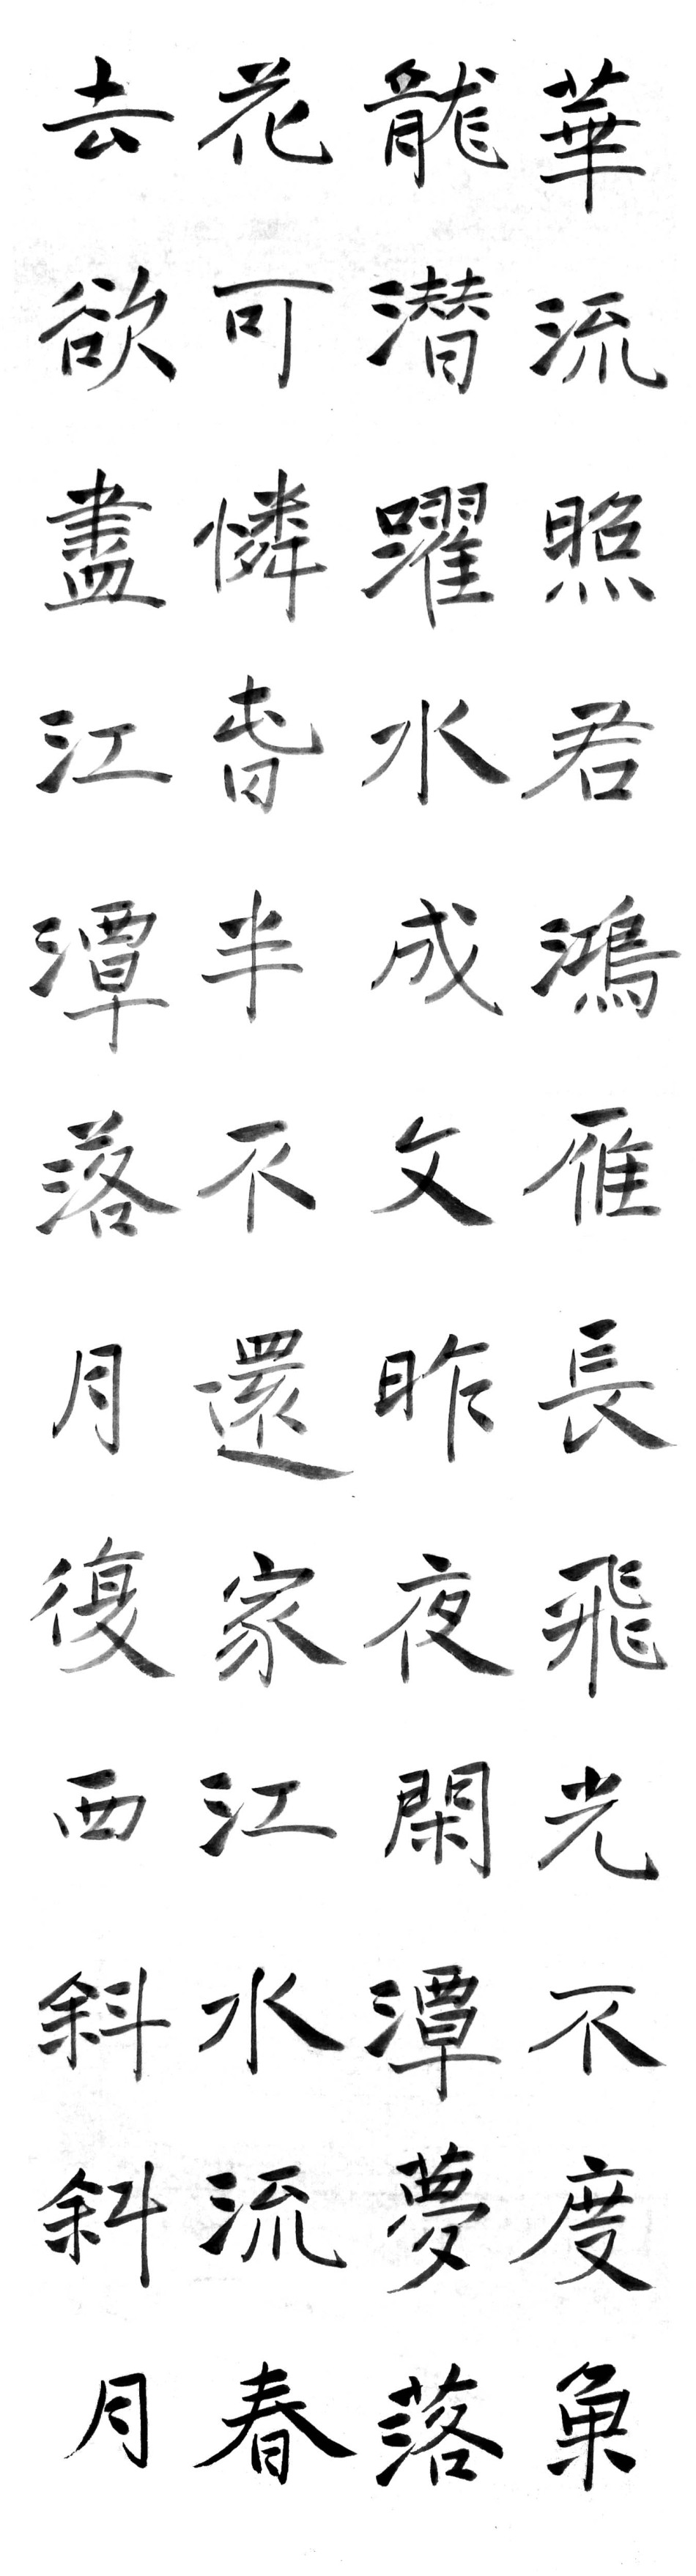 華流照君鴻雁長飛光不度魚
龍潜躍水成文昨夜閑潭夢落
花可憐旾半不還家江水流春
去欲盡江潭落月復西斜斜月